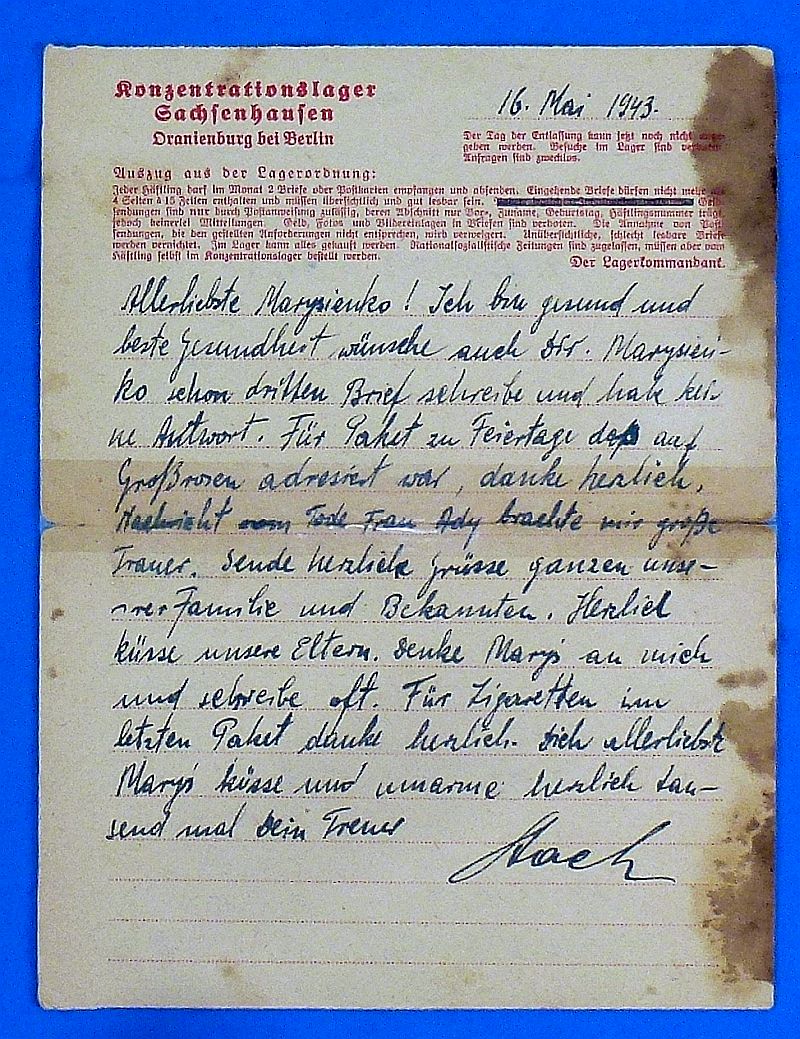 Konzentrationslager
Sachsenhausen
Oranienburg bei Berlin
16. Mai 1943.
Der Tag der Entlassung kann jetzt noch nicht
geben werden. Besuche im Lager sind
Anfragen sind zwecklos.
Auszug aus der Lagerordnung:
Jeder Häftling darf im Monat 2 Briefe oder Postkarten empfangen und absenden. Eingehende Briefe dürfen nicht mehr als
4 Seiten à 15 Zeilen enthalten und müssen übersichtlich und gut lesbar sein. Geld-
sendungen sind nur durch Postanweisung zulässig, deren Abschnitt nur Vor-, Zuname, Geburtstag, Häftlingsnummer trägt,
jedoch keinerlei Mitteilungen. Geld, Fotos und Bildereinlagen in Briefen sind verboten. Die Annahme von Post
sendungen, die den gestellten Anforderungen nicht entsprechen, wird verweigert. Unübersichtliche, schlecht lesbare Briefe
werden vernichtet. Im Lager kann alles gekauft werden. Nationalsozialistische Zeitungen sind zugelassen, müssen aber vom
Häftling selbst im Konzentrationslager bestellt werden.
Der Lagerkommandant.
Allerliebste Marysienko! Ich bin gesund und
beste Gesundheit wünsche auch Dir. Marysien-
ko schon dritten Brief schreibe und habe kei-
ne Antwort. Für Paket zu Feiertage daß auf
Großrosen adresiert war, danke herzlich.
Nachricht vom Tode Frau Ady brachte mir große
Trauer. Sende herzliche Grüsse ganzen unse-
rer Familie und Bekannten. Herzlich
küsse unsere Eltern. Denke Maryś an mich
und schreibe oft. Für Zigaretten im
letzten Paket danke herzlich. Dich allerliebste
Maryś küsse und umarme herzlich tau-
send mal Dein Treuer
Stach